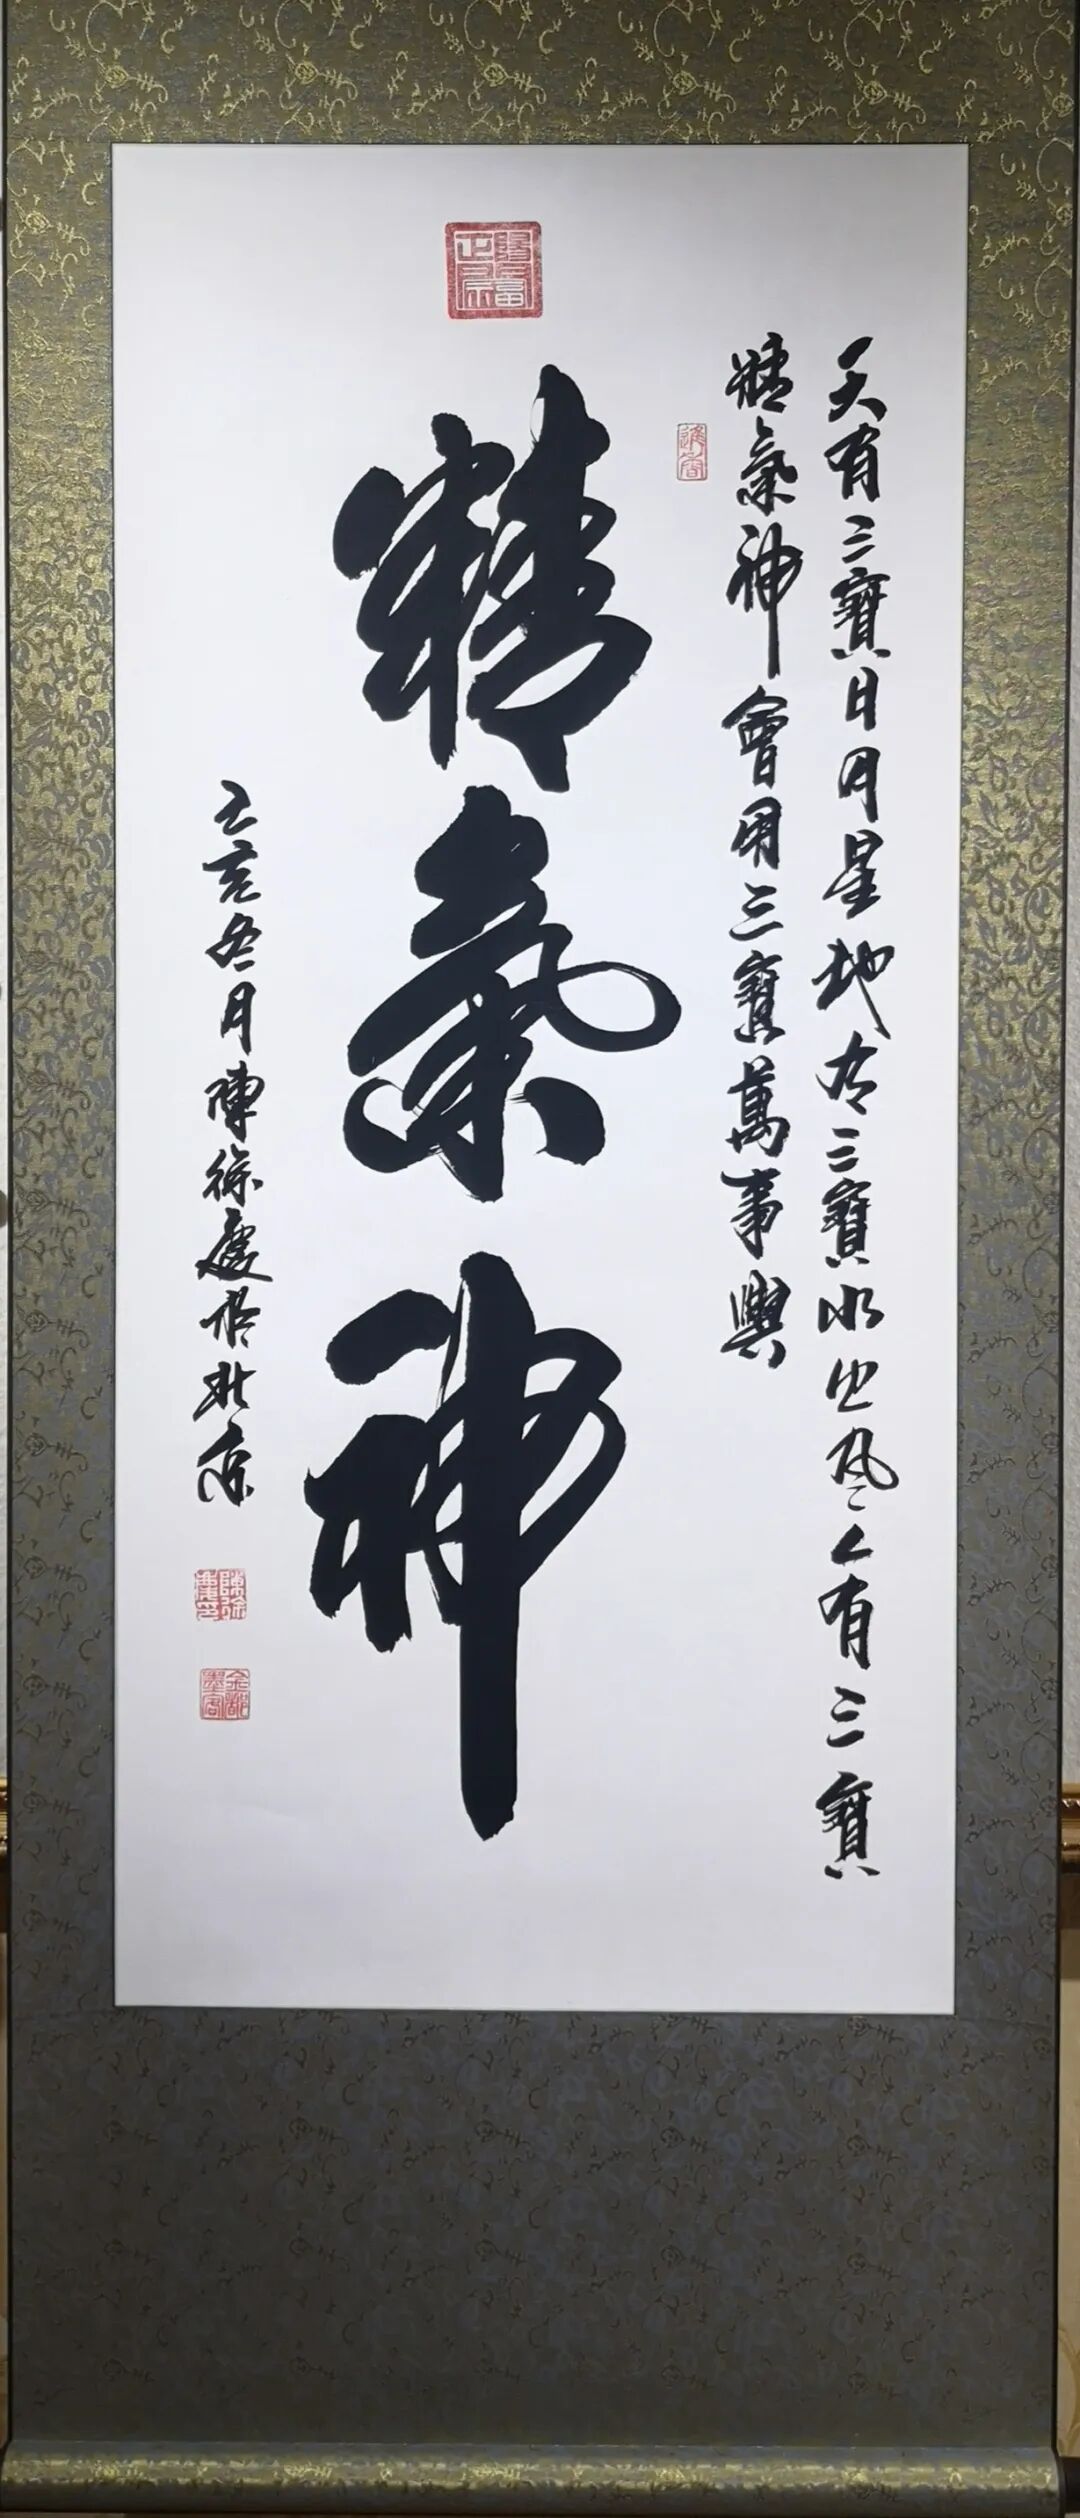 天有三寶日月星地有三寶水火風人有三寶
精氣神會用三寶萬事興
精氣神
亥冬月陳徐慶於北京
金都墨客